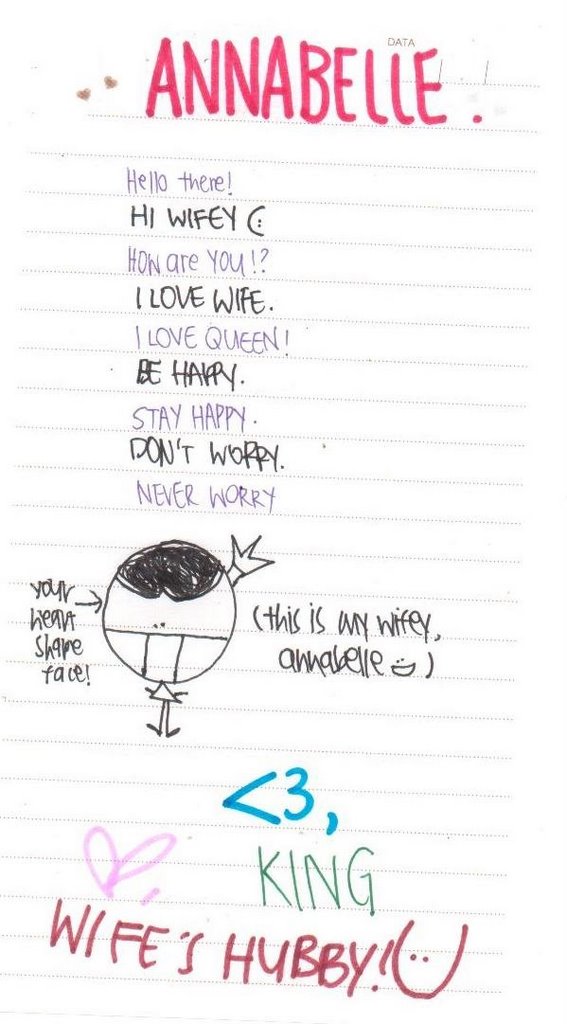 DATA
ANNABELLE.
Hello there!
HI WIFEY (:
HOW are YOU!?
I LOVE WIFE.
I LOVE QUEEN!
BE HAPPY.
STAY HAPPY.
DON'T WORRY.
NEVER WORRY
your
heart
shape
face!
(this is my wifey,
annabelle )
<3,
KING
WIFE'S HUBBY! (: